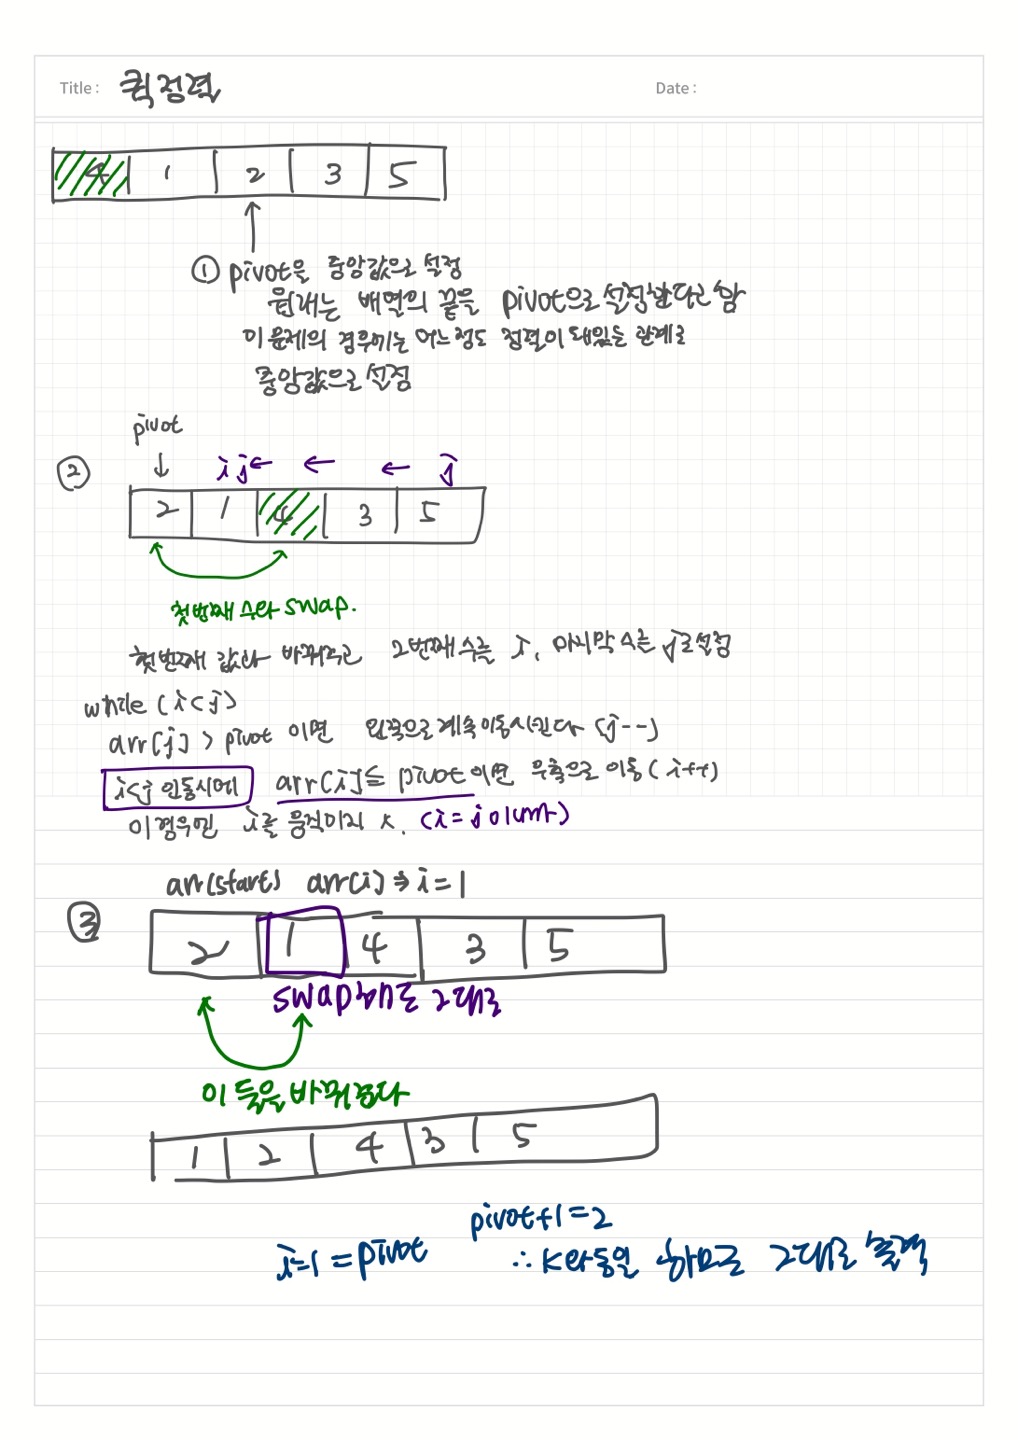 Title : 퀵정렬
Date :
4 1 2 3 5
① pivot을 중앙값으로 설정
원래는 배열의 끝을 pivot으로 설정한다고 함
이 문제의 경우에는 어느정도 정렬이 돼있는 관계로
중앙값으로 설정
pivot
② i j← ← ← j
2 1 4 3 5
첫번째 수와 swap.
첫번째 값과 바꿔주고 2번째수는 i, 마지막 수는 j로설정
while (i<j)
arr[j] > pivot 이면 왼쪽으로 계속이동시킨다 (j--)
i<j 인동시에 arr[i]≤ pivot이면 우측으로 이동 (i++)
이경우엔 i를 움직이지 x. (i=j 이니까)
arr(start) arr(i) → i=1
③
2 1 4 3 5
swap해도 그대로
이 둘을 바꿔준다
1 2 4 3 5
pivot+1=2
i=1 = pivot
∴ K와동일 하므로 그대로 출력